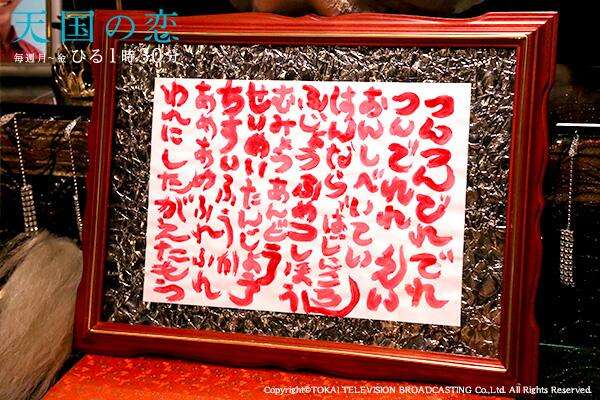 天国の恋
毎週月~金 ひる1時30分
つんつんでれでれ
つんでれれ
おんしべいてい
はんならば
ふじょうふめつしょう
むみょうあんどう
せいめいたんじょう
ちすいふうか
あめあめふれふん
われにしたがえたもつ
Copyright©TOKAI TELEVISION BROADCASTING Co.,Ltd. All Rights Reserved.